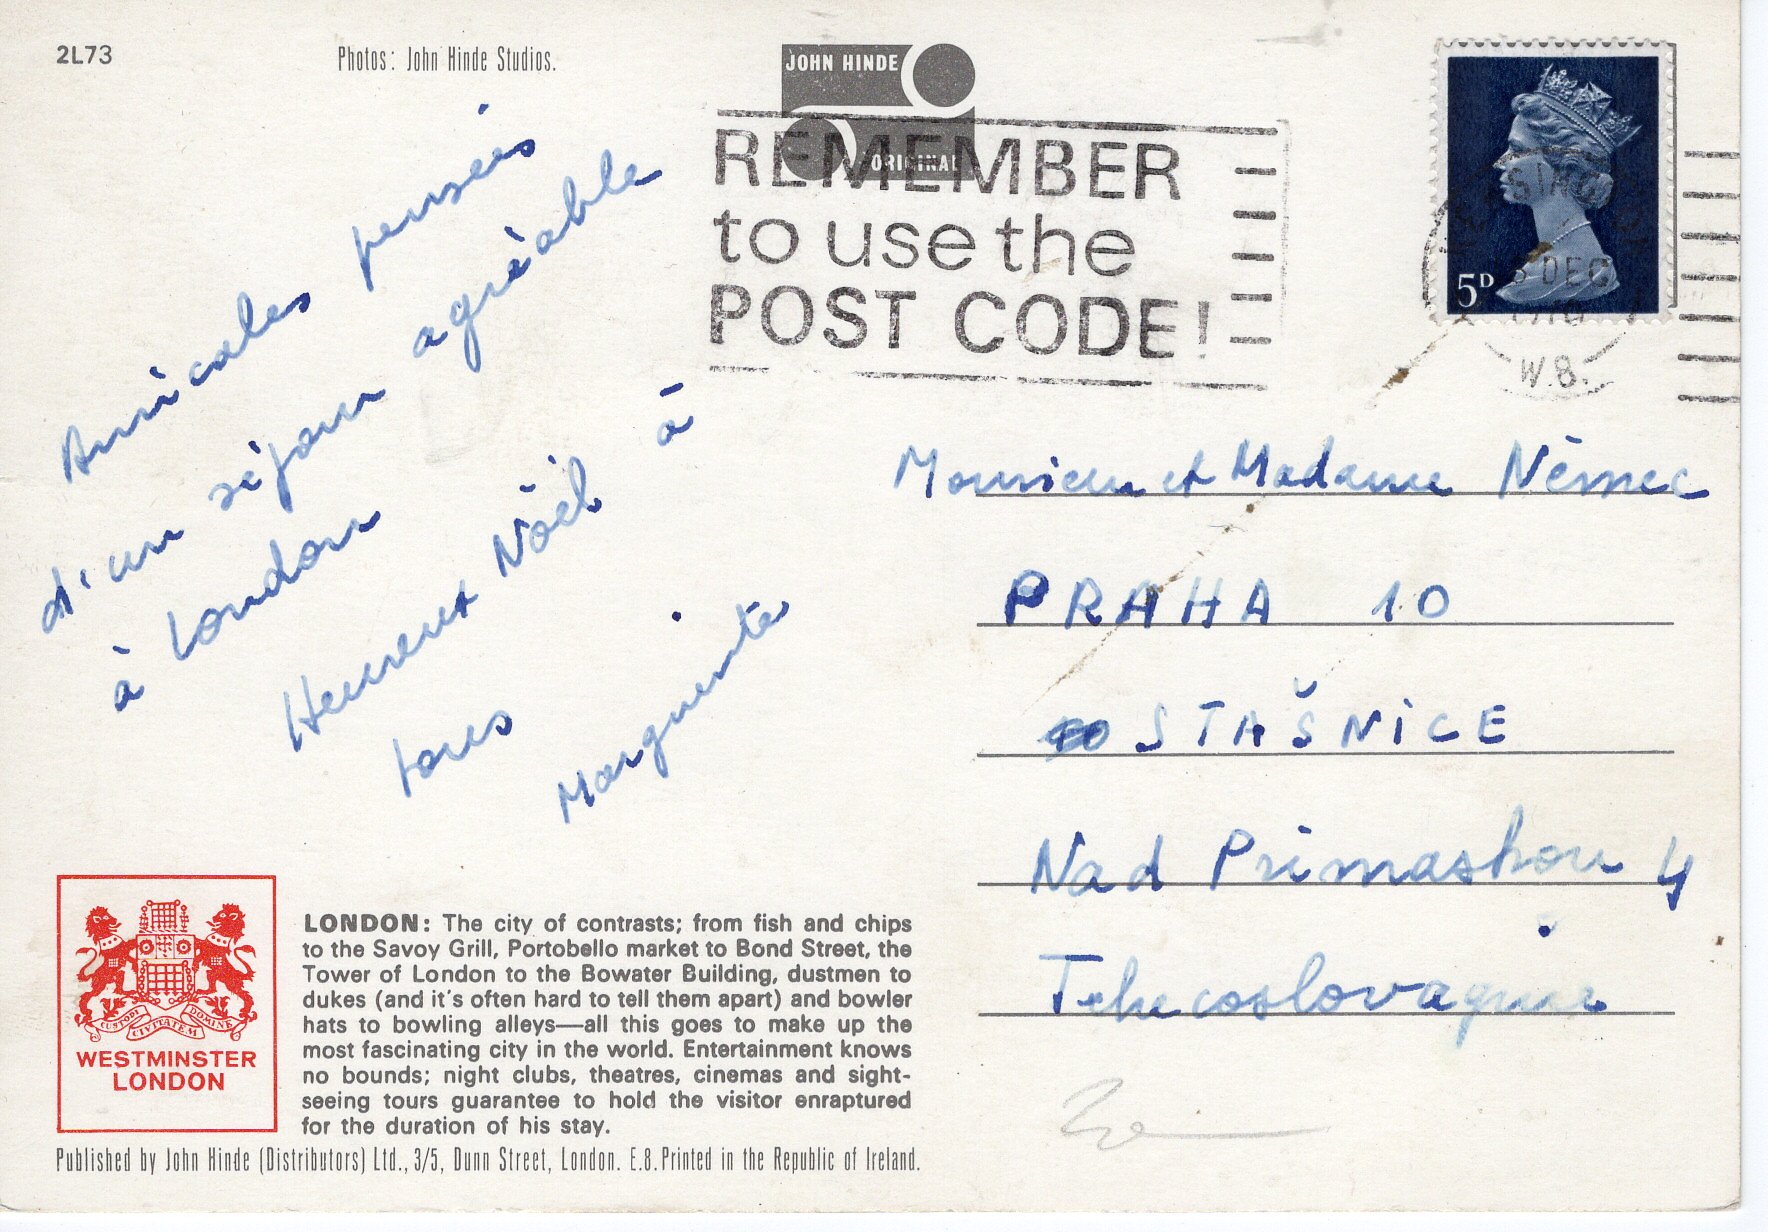 2L73
Photos: John Hinde Studios.
JOHN HINDE
ORIGINAL
REMEMBER
to use the
POST CODE!
5D
DEC
W.8.
Amicales pensées
d'un séjour agréable
à London
Heureux Noël à
tous
Marguerite
Monsieur et Madame Němec
PRAHA 10
STAŠNICE
Nad Primaskou 4
Tchecoslovaquie
CUSTODI CIVITATEM DOMINE
WESTMINSTER
LONDON
LONDON: The city of contrasts; from fish and chips
to the Savoy Grill, Portobello market to Bond Street, the
Tower of London to the Bowater Building, dustmen to
dukes (and it's often hard to tell them apart) and bowler
hats to bowling alleys—all this goes to make up the
most fascinating city in the world. Entertainment knows
no bounds; night clubs, theatres, cinemas and sight-
seeing tours guarantee to hold the visitor enraptured
for the duration of his stay.
Published by John Hinde (Distributors) Ltd., 3/5, Dunn Street, London. E.8. Printed in the Republic of Ireland.